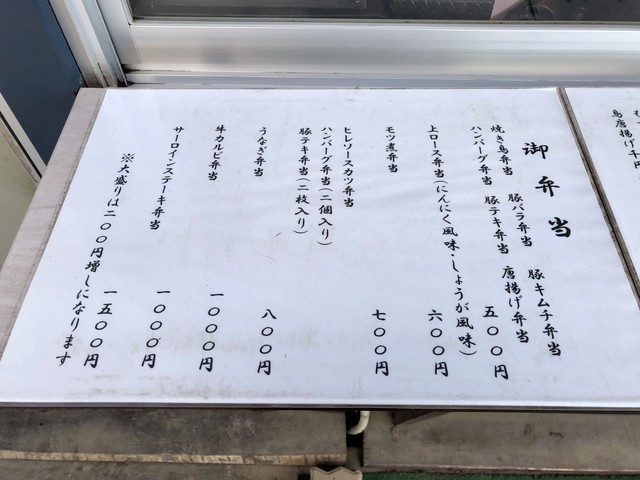 鳥唐揚げ千円
御弁当
焼き鳥弁当 豚バラ弁当 豚キムチ弁当
ハンバーグ弁当 豚テキ弁当 唐揚げ弁当
五〇〇円
上ロース弁当(にんにく風味・しょうが風味) 六〇〇円
モツ煮弁当 七〇〇円
ヒレソースカツ弁当
ハンバーグ弁当(二個入り)
豚テキ弁当(二枚入り) 八〇〇円
うなぎ弁当 一〇〇〇円
牛カルビ弁当 一〇〇〇円
サーロインステーキ弁当 一五〇〇円
※大盛りは二〇〇円増しになります